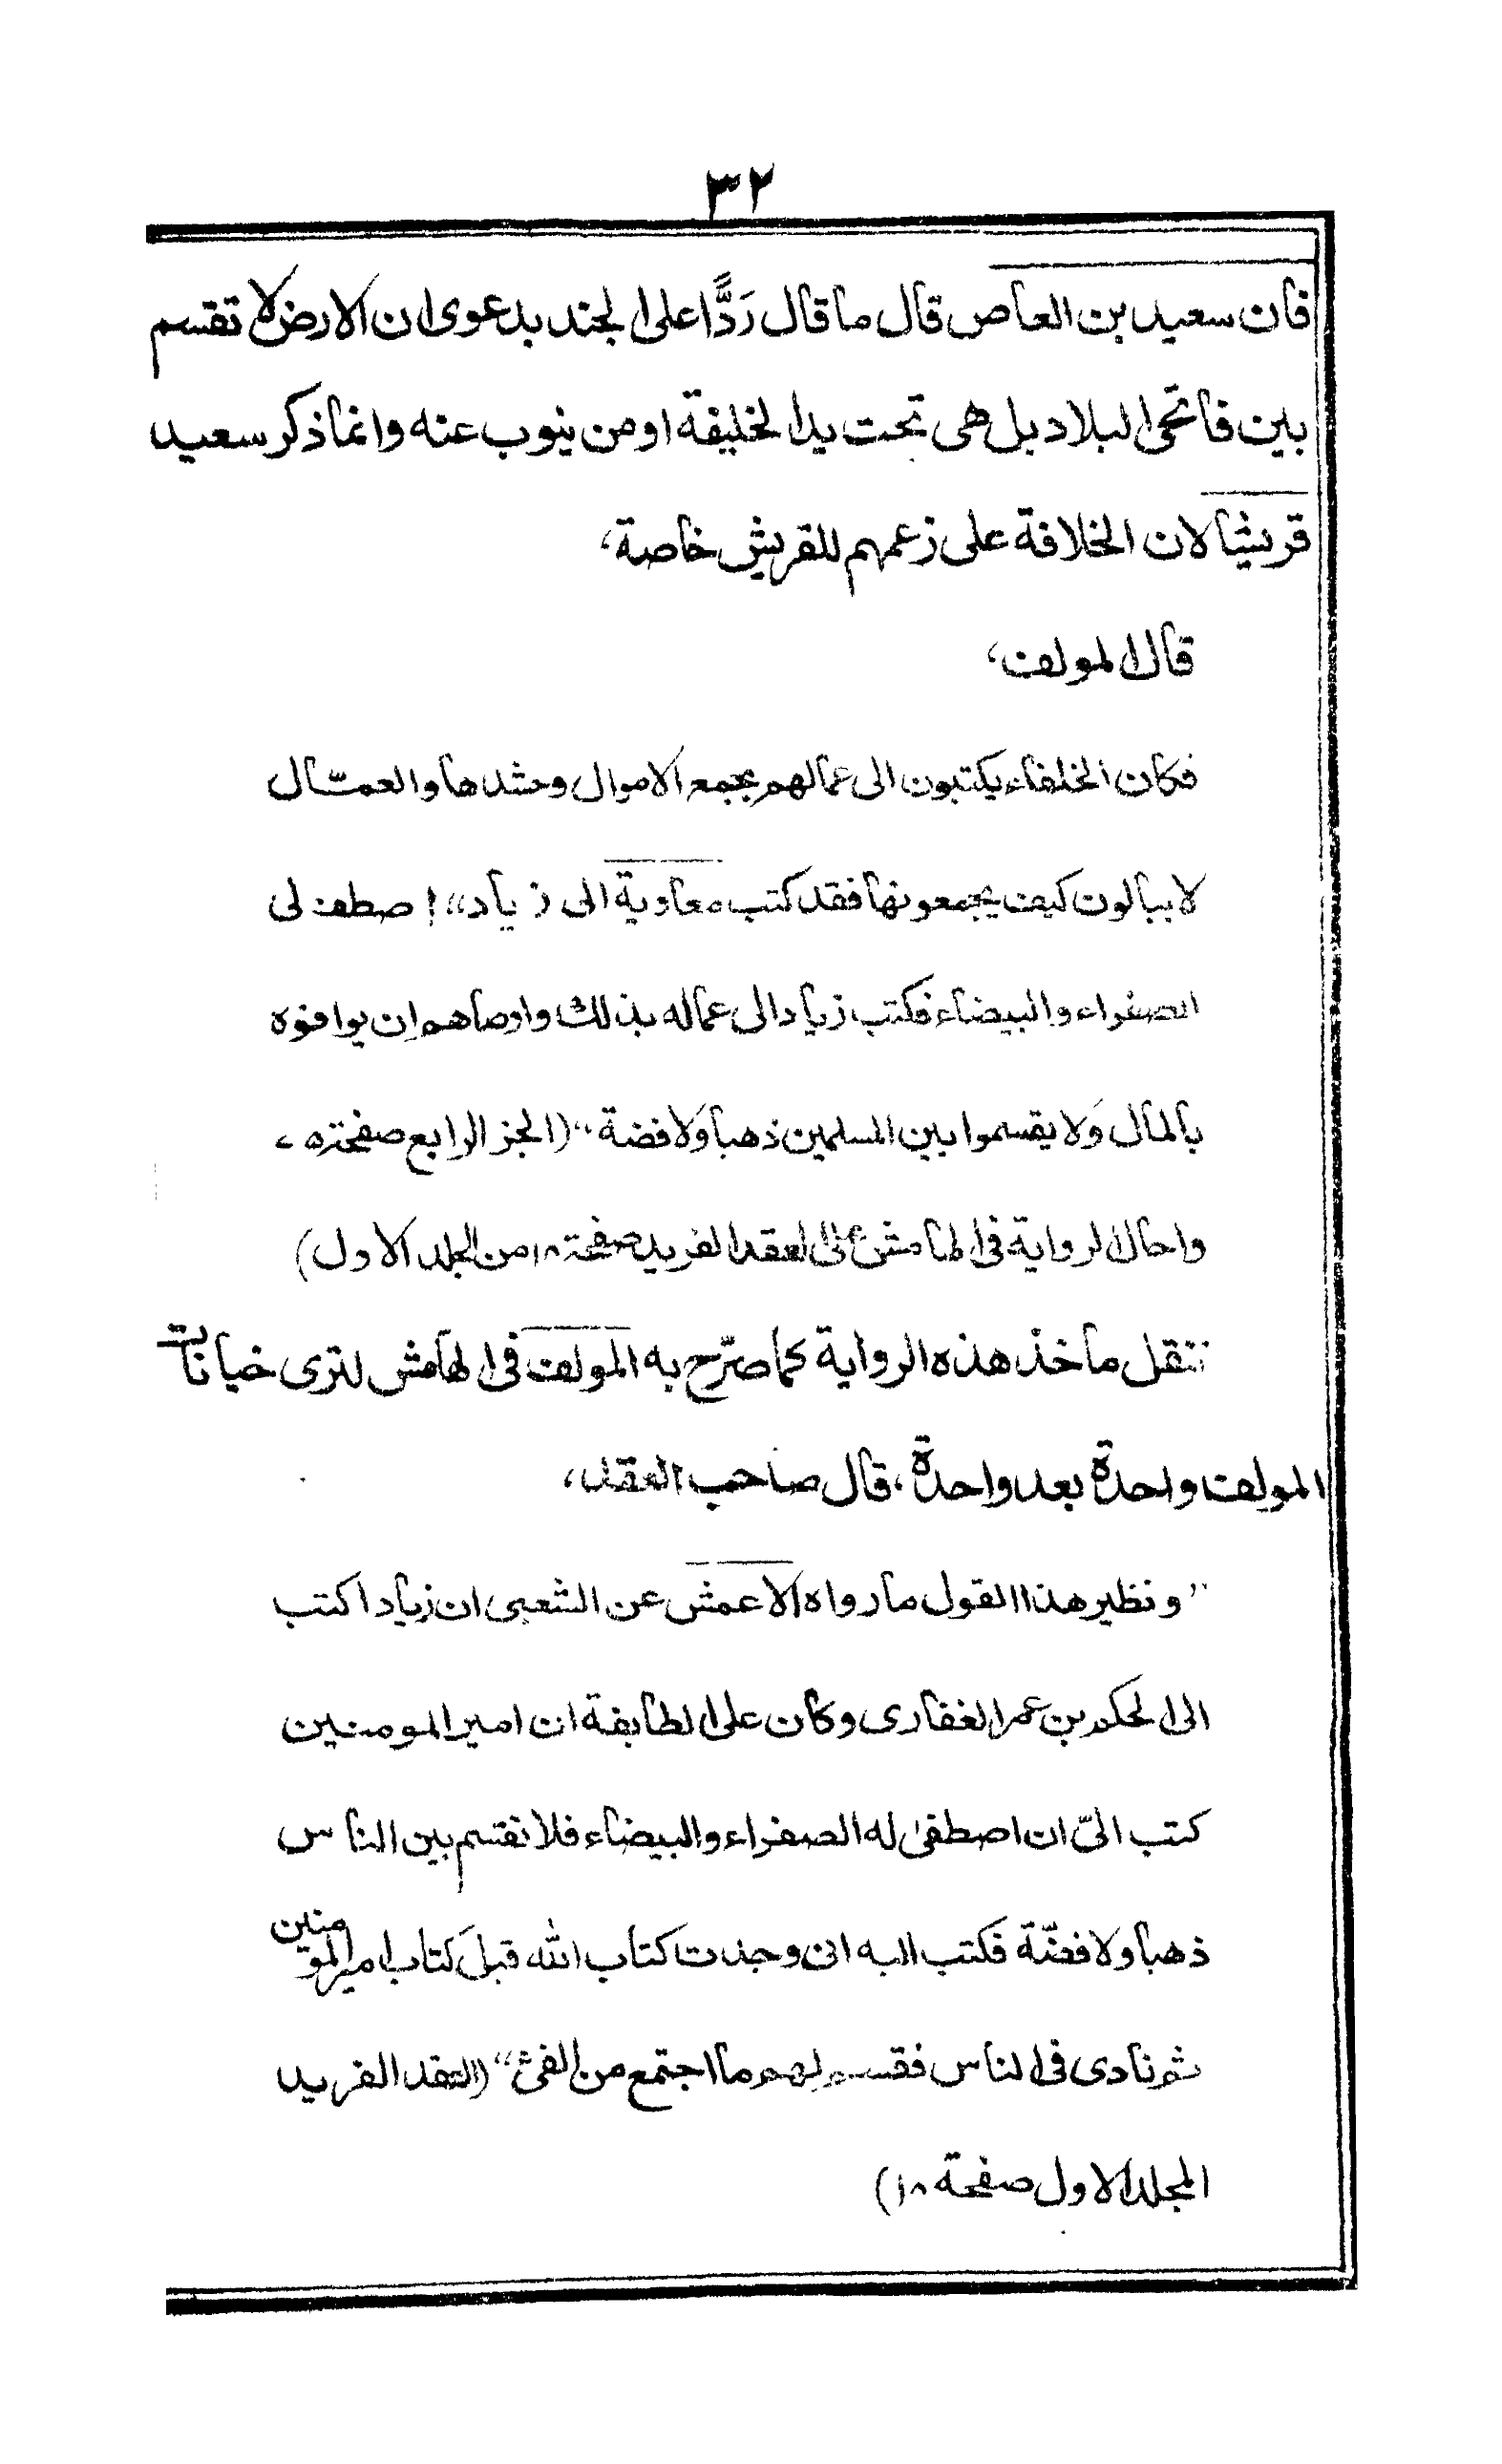 ٣٢
فان سعيد بن العاص قال ما قال رَدًّا على الجند بدعوى ان الارض لا تقسم
بين فاتحى البلاد بل هى تحت يد الخليفة او من ينوب عنه وانما ذكر سعيد
قريشا لان الخلافة على زعمهم للقريش خاصة،
قال المولف،
فكان الخلفاء يكتبون الى عمالهم بجمع الاموال وحشدها والعمّال
لا يبالون كيف يجمعونها فقد كتب معاوية الى زياد "اصطف لى
الصفراء والبيضاء فكتب زياد الى عماله بذلك واوصاهم ان يوافوه
بالمال ولا يقسموا بين المسلمين ذهبا ولا فضة" (الجز الرابع صفحة
واحال الرواية فى الهامش على العقد الفريد صفحة ١٨ من المجلد الاول)
ننقل ماخذ هذه الرواية كما صرّح به المولف فى الهامش لترى خيانات
المولف واحدة بعد واحدة، قال صاحب العقد،
"ونظير هذا القول ما رواه الاعمش عن الشعبى ان زيادا كتب
الى الحكم بن عمر الغفارى وكان على الطايفة ان امير المومنين
كتب الىّ ان اصطفى له الصفراء والبيضاء فلا تقسم بين الناس
ذهبا ولا فضّة فكتب اليه انى وجدت كتاب الله قبل كتاب امير المومنين
ثم نادى فى الناس فقسم لهم ما اجتمع من الفئ" (العقد الفريد
المجلد الاول صفحة ١٨)